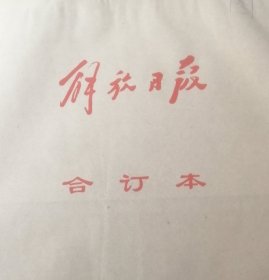 解放日报
合订本